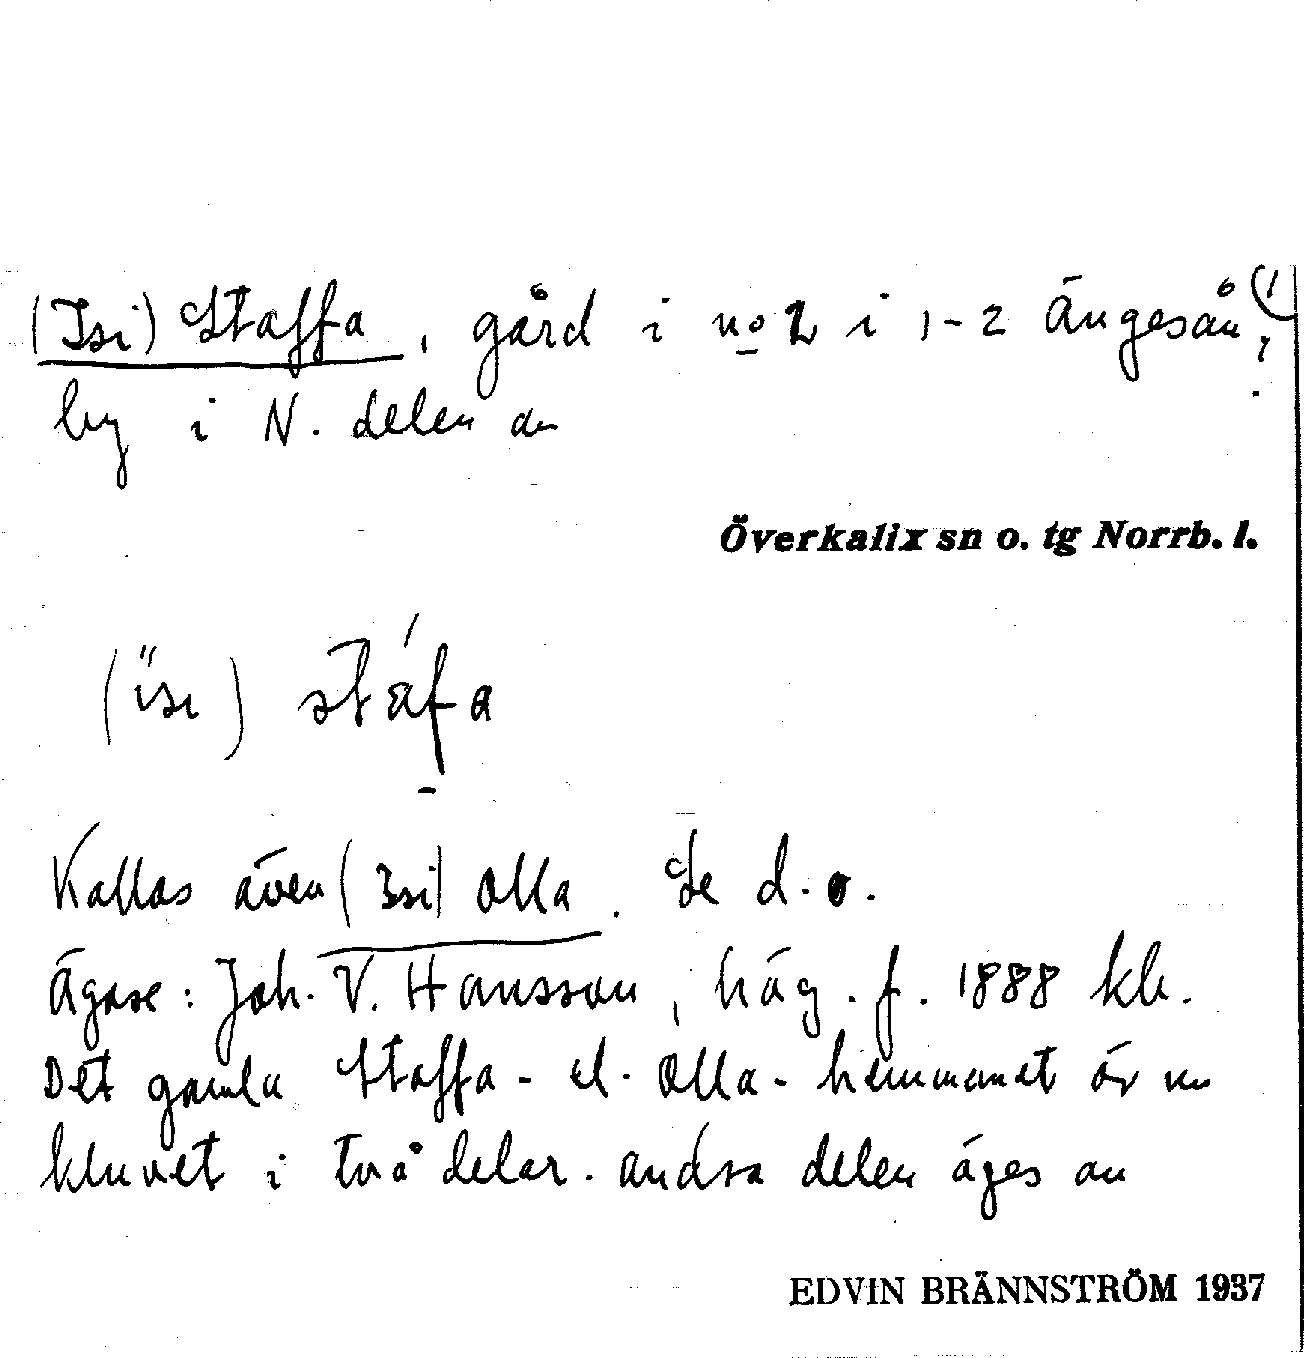 (Isi) Staffa, gård i no 2 i 1-2 Ängesån, (1
by i N. delen av
Överkalix sn o. tg Norrb. l.
(isi) stáfa
Kallas även (Isi) Olla. Se d.o.
Ägare: Joh. V. Hansson, häg. f. 1888 kh.
Det gamla Staffa- el. Olla-hemmanet är nu
kluvet i två delar. Andra delen äges av
EDVIN BRÄNNSTRÖM 1937